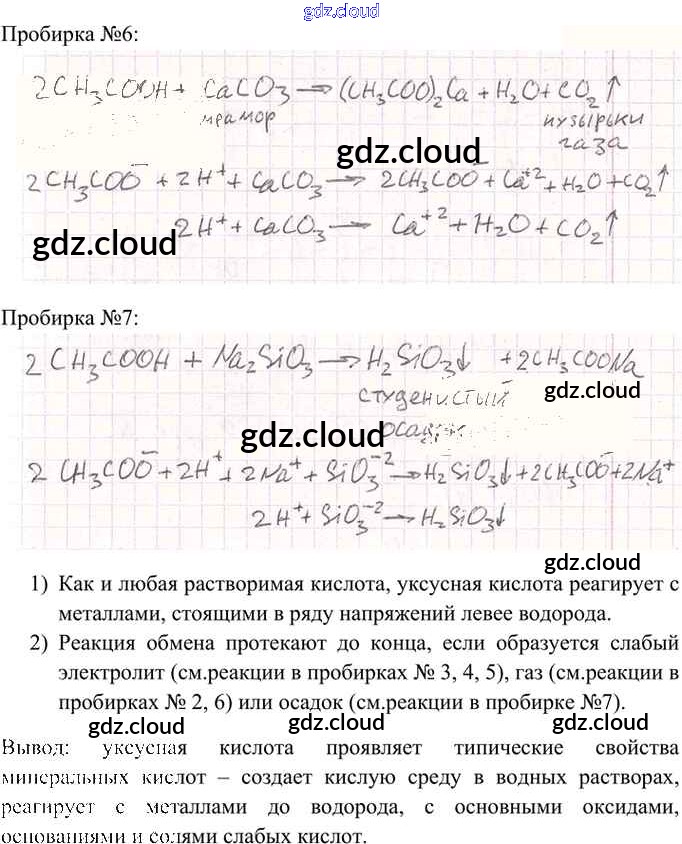 gdz.cloud
Пробирка №6:
2CH₃COOH + CaCO₃ → (CH₃COO)₂Ca + H₂O + CO₂↑
мрамор пузырьки
газа
gdz.cloud
2CH₃COO⁻ + 2H⁺ + CaCO₃ → 2CH₃COO⁻ + Ca⁺² + H₂O + CO₂↑
2H⁺ + CaCO₃ → Ca⁺² + H₂O + CO₂↑
gdz.cloud
Пробирка №7:
2CH₃COOH + Na₂SiO₃ → H₂SiO₃↓ + 2CH₃COONa
студенистый
gdz.cloud
осадок
gdz.cloud
2CH₃COO⁻ + 2H⁺ + 2Na⁺ + SiO₃⁻² → H₂SiO₃↓ + 2CH₃COO⁻ + 2Na⁺
2H⁺ + SiO₃⁻² → H₂SiO₃↓
gdz.cloud
1) Как и любая растворимая кислота, уксусная кислота реагирует с
металлами, стоящими в ряду напряжений левее водорода.
2) Реакция обмена протекают до конца, если образуется слабый
электролит (см.реакции в пробирках № 3, 4, 5), газ (см.реакции в
пробирках № 2, 6) или осадок (см.реакции в пробирке №7).
gdz.cloud gdz.cloud gdz.cloud
Вывод: уксусная кислота проявляет типические свойства
минеральных кислот – создает кислую среду в водных растворах,
реагирует с металлами до водорода, с основными оксидами,
основаниями и солями слабых кислот.